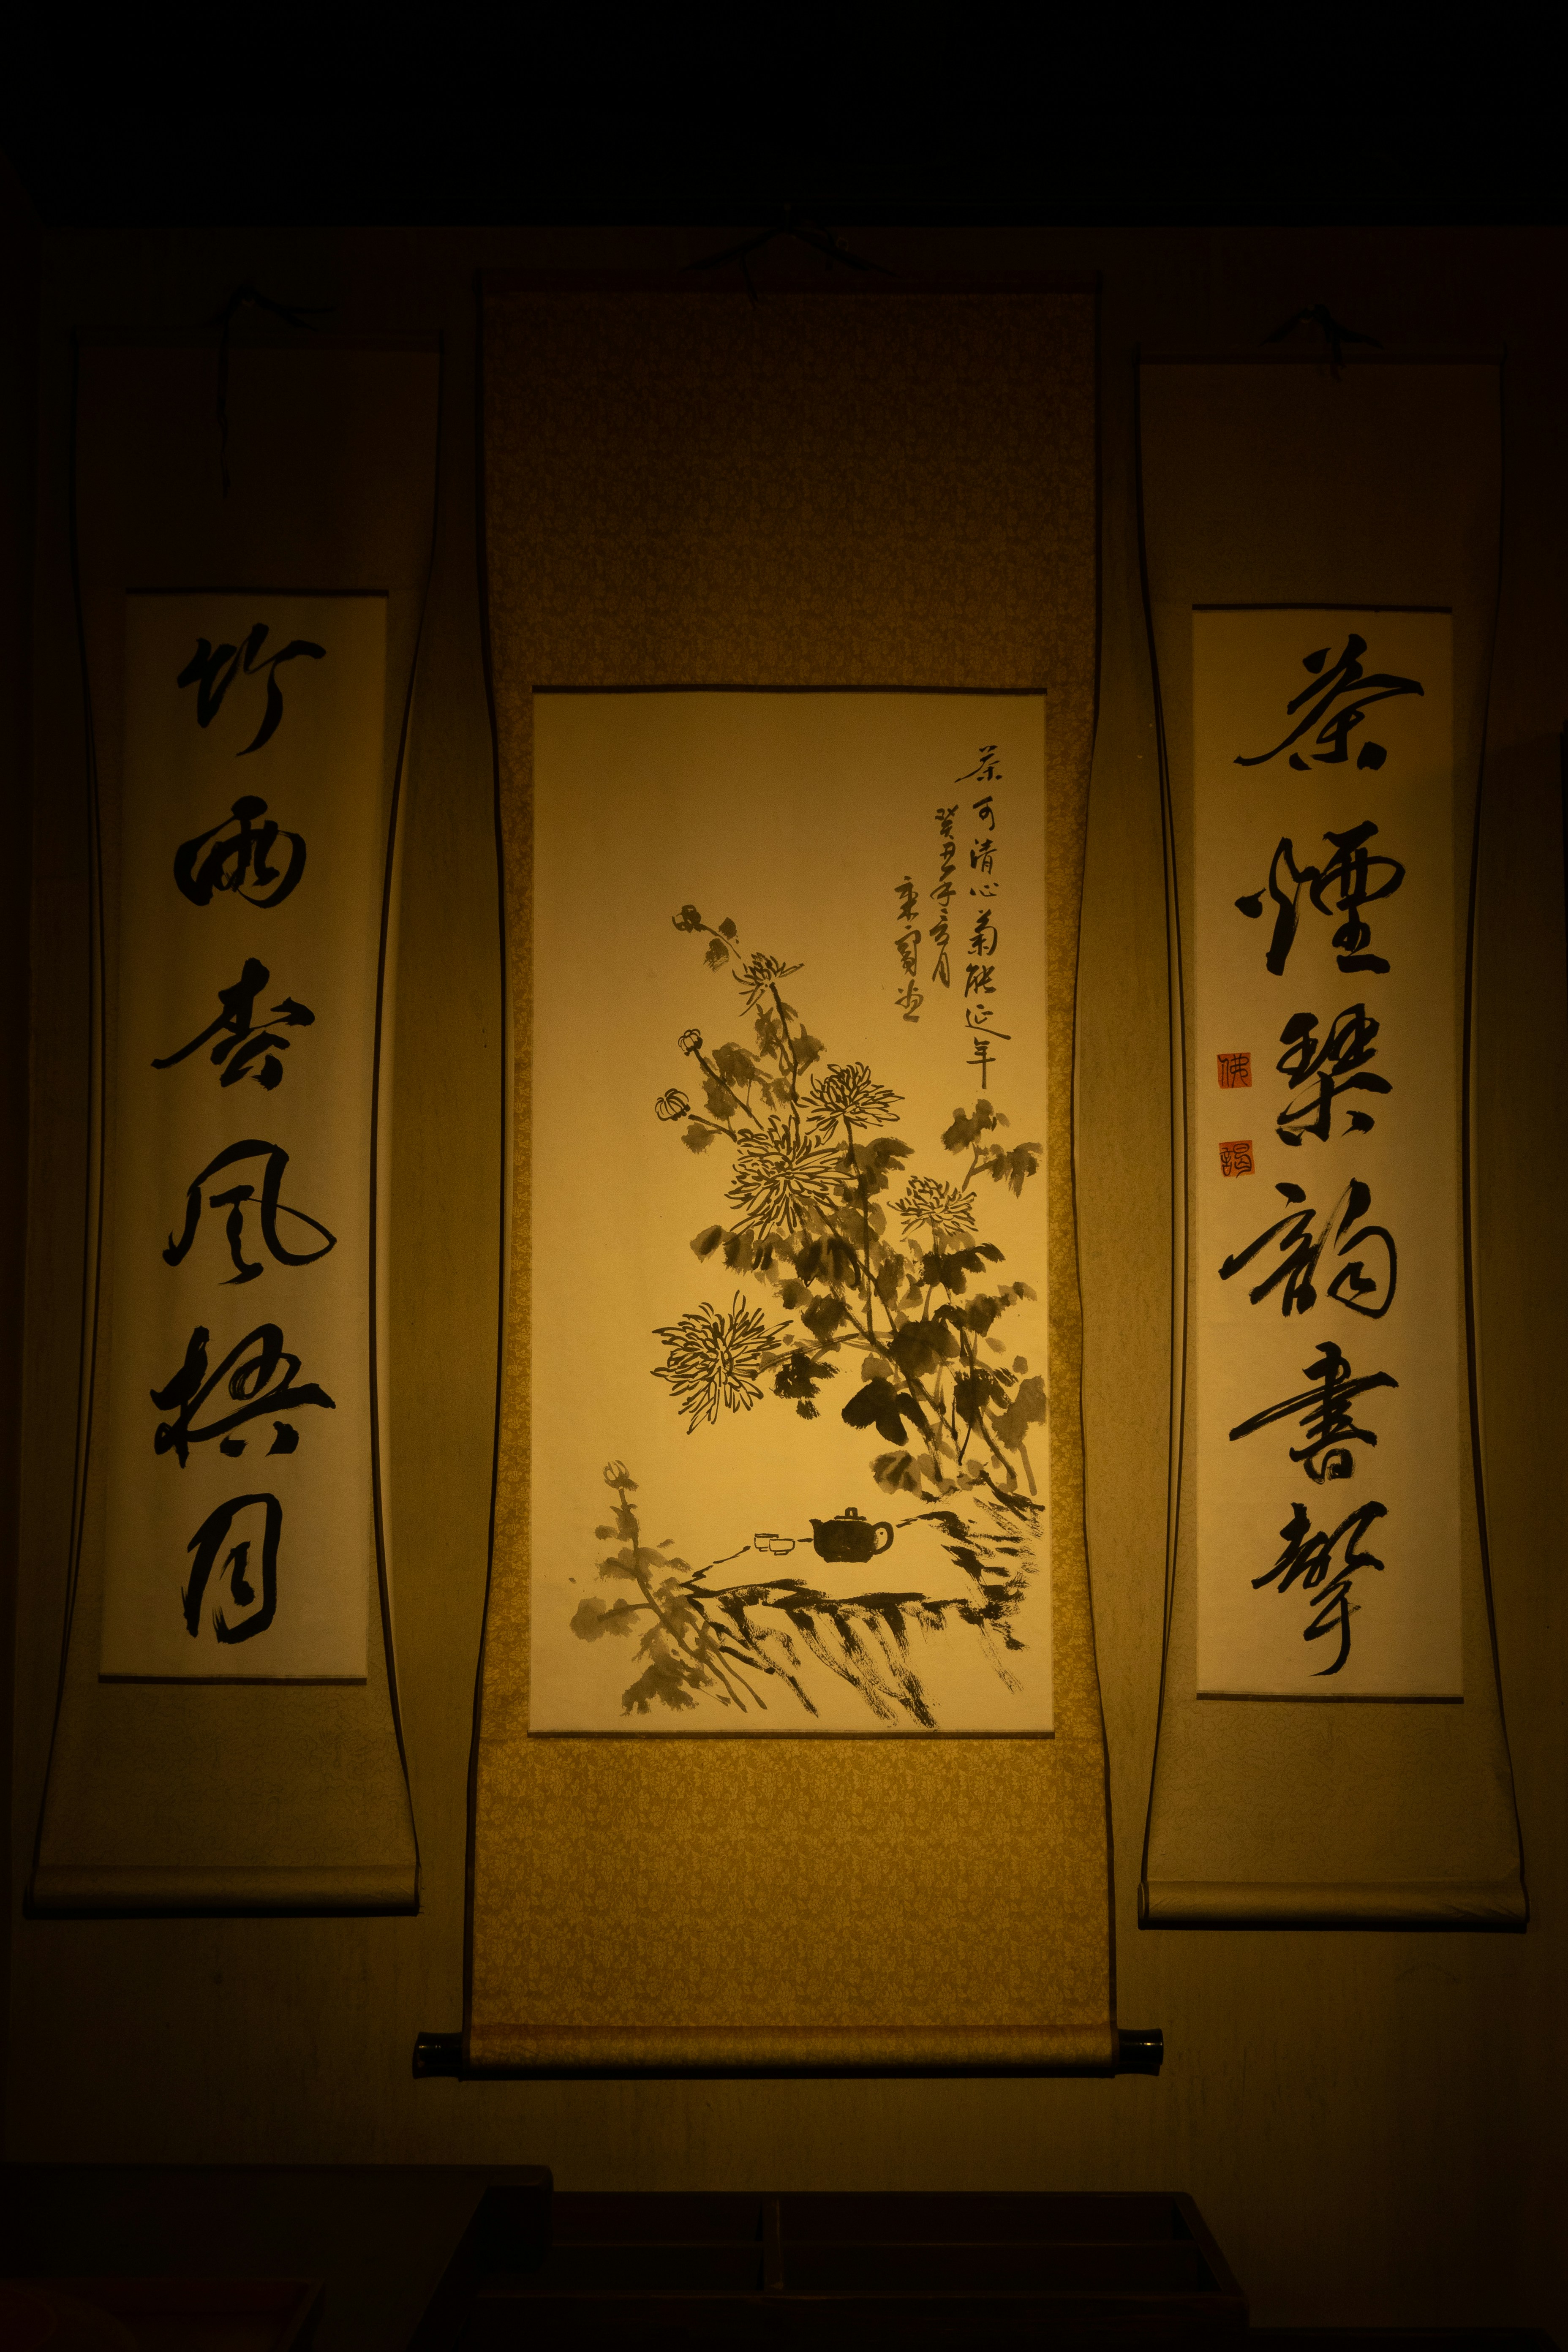 茶煙琴韻書聲
茶可清心菊能延年
癸丑年月
竹雨松風梧月
佛